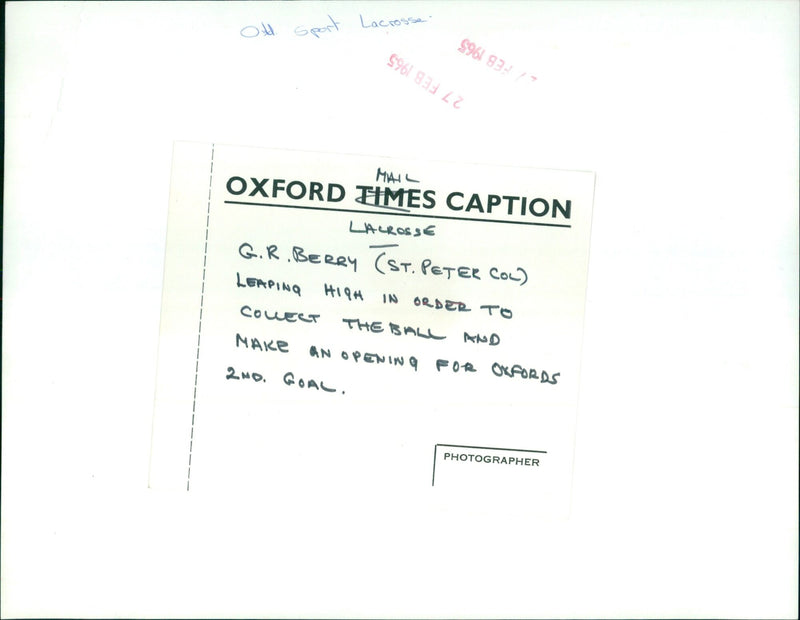 Odd Sport Lacrosse.
27 FEB 1965
27 FEB 1965
MAIL
OXFORD TIMES CAPTION
LACROSSE
G.R. BERRY (ST. PETER COL)
LEAPING HIGH IN ORDER TO
COLLECT THE BALL AND
MAKE AN OPENING FOR OXFORDS
2ND. GOAL.
PHOTOGRAPHER